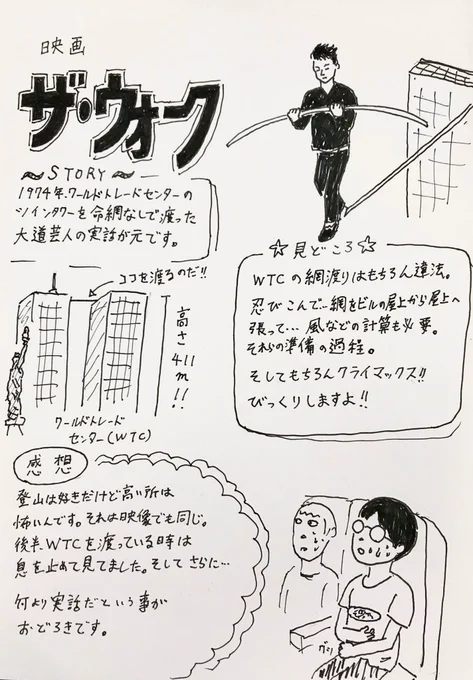 映画
ザ・ウォーク
~STORY~
1974年、ワールドトレードセンターの
ツインタワーを命綱なしで渡った
大道芸人の実話が元です。
ココを渡るのだ!!
高さ411m!!
ワールドトレード
センター(WTC)
☆見どころ☆
WTCの綱渡りはもちろん違法。
忍びこんで…綱をビルの屋上から屋上へ
張って… 風などの計算も必要。
それらの準備の過程。
そしてもちろんクライマックス!!
びっくりしますよ!!
感想
登山は好きだけど高い所は
怖いんです。それは映像でも同じ。
後半、WTCを渡っている時は
息を止めて見てました。そしてさらに…
何より実話だという事が
おどろきです。